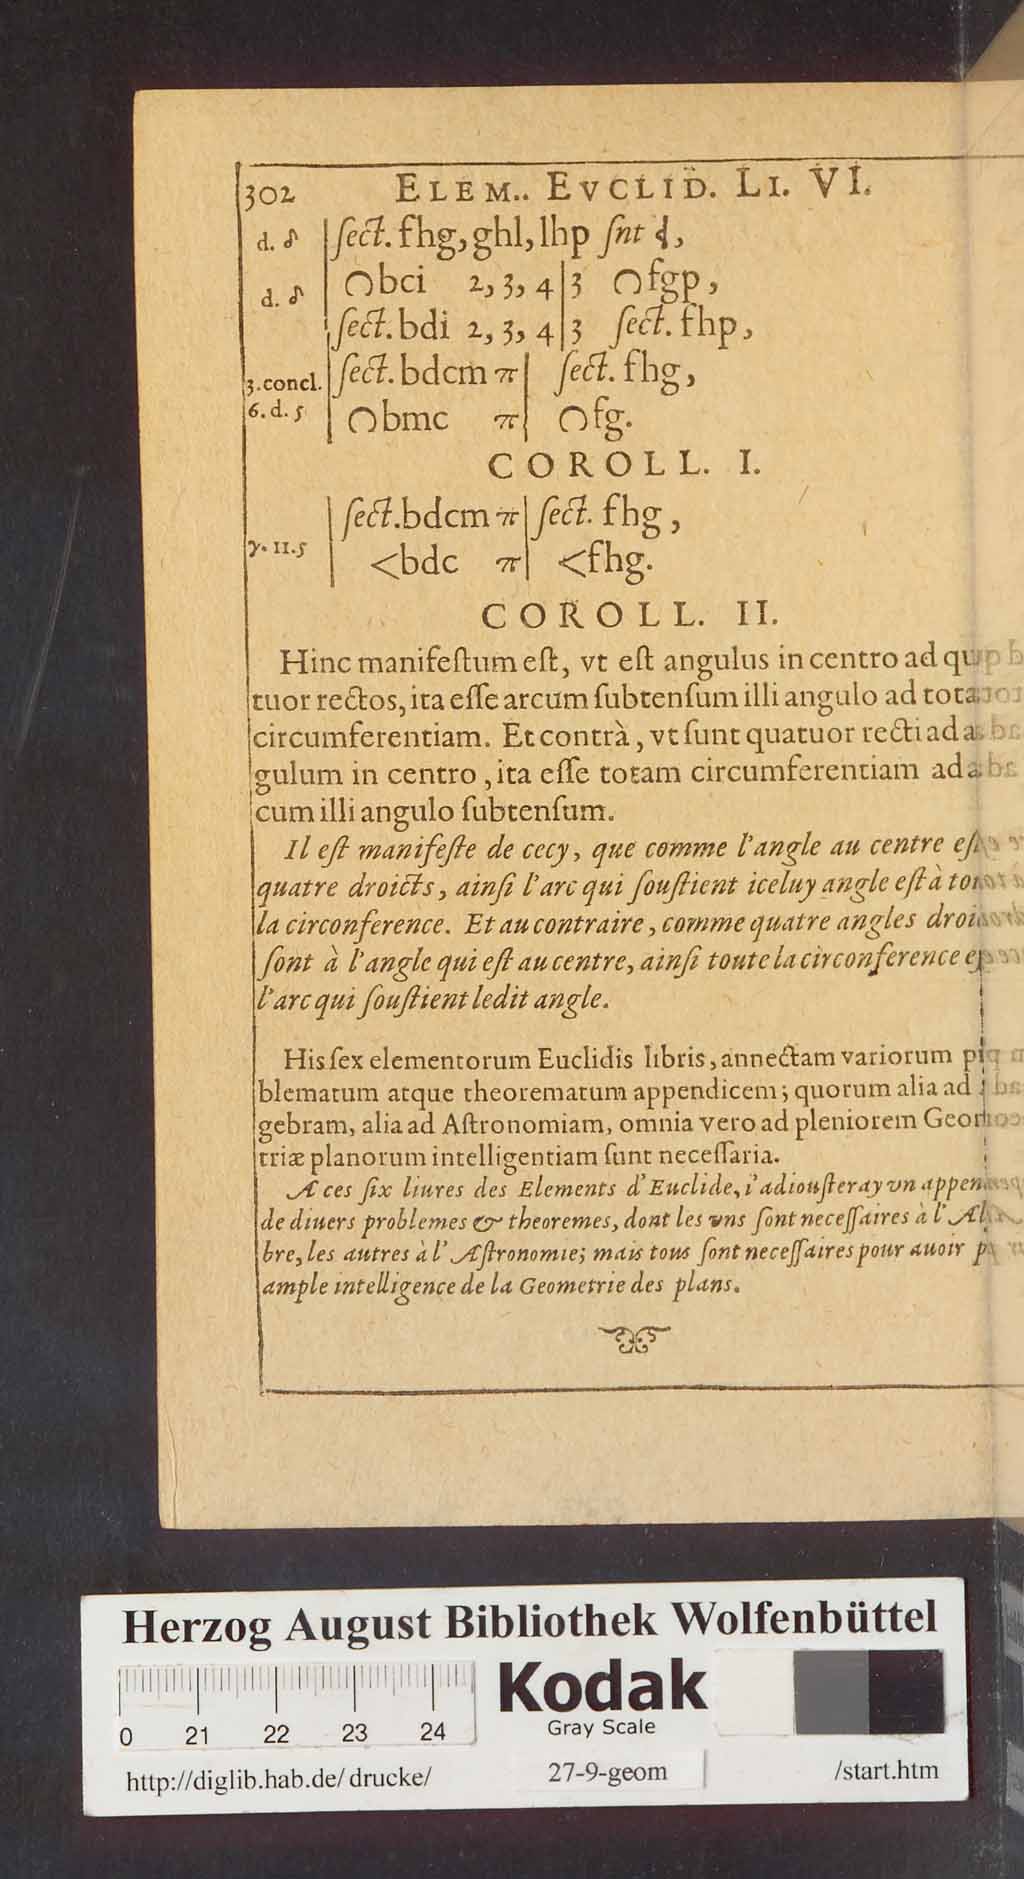 302 ELEM.. EVCLID. LI. VI.
d. ſect. fhg, ghl, lhp ſnt
d. ⌒bci 2, 3, 4|3 ⌒fgp,
ſect. bdi 2, 3, 4|3 ſect. fhp,
3. concl. ſect. bdcm π| ſect. fhg,
6. d. 5 ⌒bmc π| ⌒fg.
COROLL. I.
ſect. bdcm π| ſect. fhg,
γ. 11. 5 <bdc π| <fhg.
COROLL. II.
Hinc manifeſtum eſt, vt eſt angulus in centro ad
tuor rectos, ita eſſe arcum ſubtenſum illi angulo ad
circumferentiam. Et contrà, vt ſunt quatuor recti ad
gulum in centro, ita eſſe totam circumferentiam ad
cum illi angulo ſubtenſum.
Il eſt manifeſte de cecy, que comme l'angle au centre
quatre droicts, ainſi l'arc qui ſouſtient iceluy angle eſt à
la circonference. Et au contraire, comme quatre angles
ſont à l'angle qui eſt au centre, ainſi toute la circonference
l'arc qui ſouſtient ledit angle.
His ſex elementorum Euclidis libris, annectam variorum
blematum atque theorematum appendicem; quorum alia ad
gebram, alia ad Aſtronomiam, omnia vero ad pleniorem
triæ planorum intelligentiam ſunt neceſſaria.
A ces ſix liures des Elements d'Euclide, i'adiouſteray vn
de diuers problemes & theoremes, dont les vns ſont neceſſaires à
bre, les autres à l'Aſtronomie; mais tous ſont neceſſaires pour auoir
ample intelligence de la Geometrie des plans.
Herzog August Bibliothek Wolfenbüttel
Kodak
Gray Scale
0 21 22 23 24
http://diglib.hab.de/drucke/ 27-9-geom /start.htm